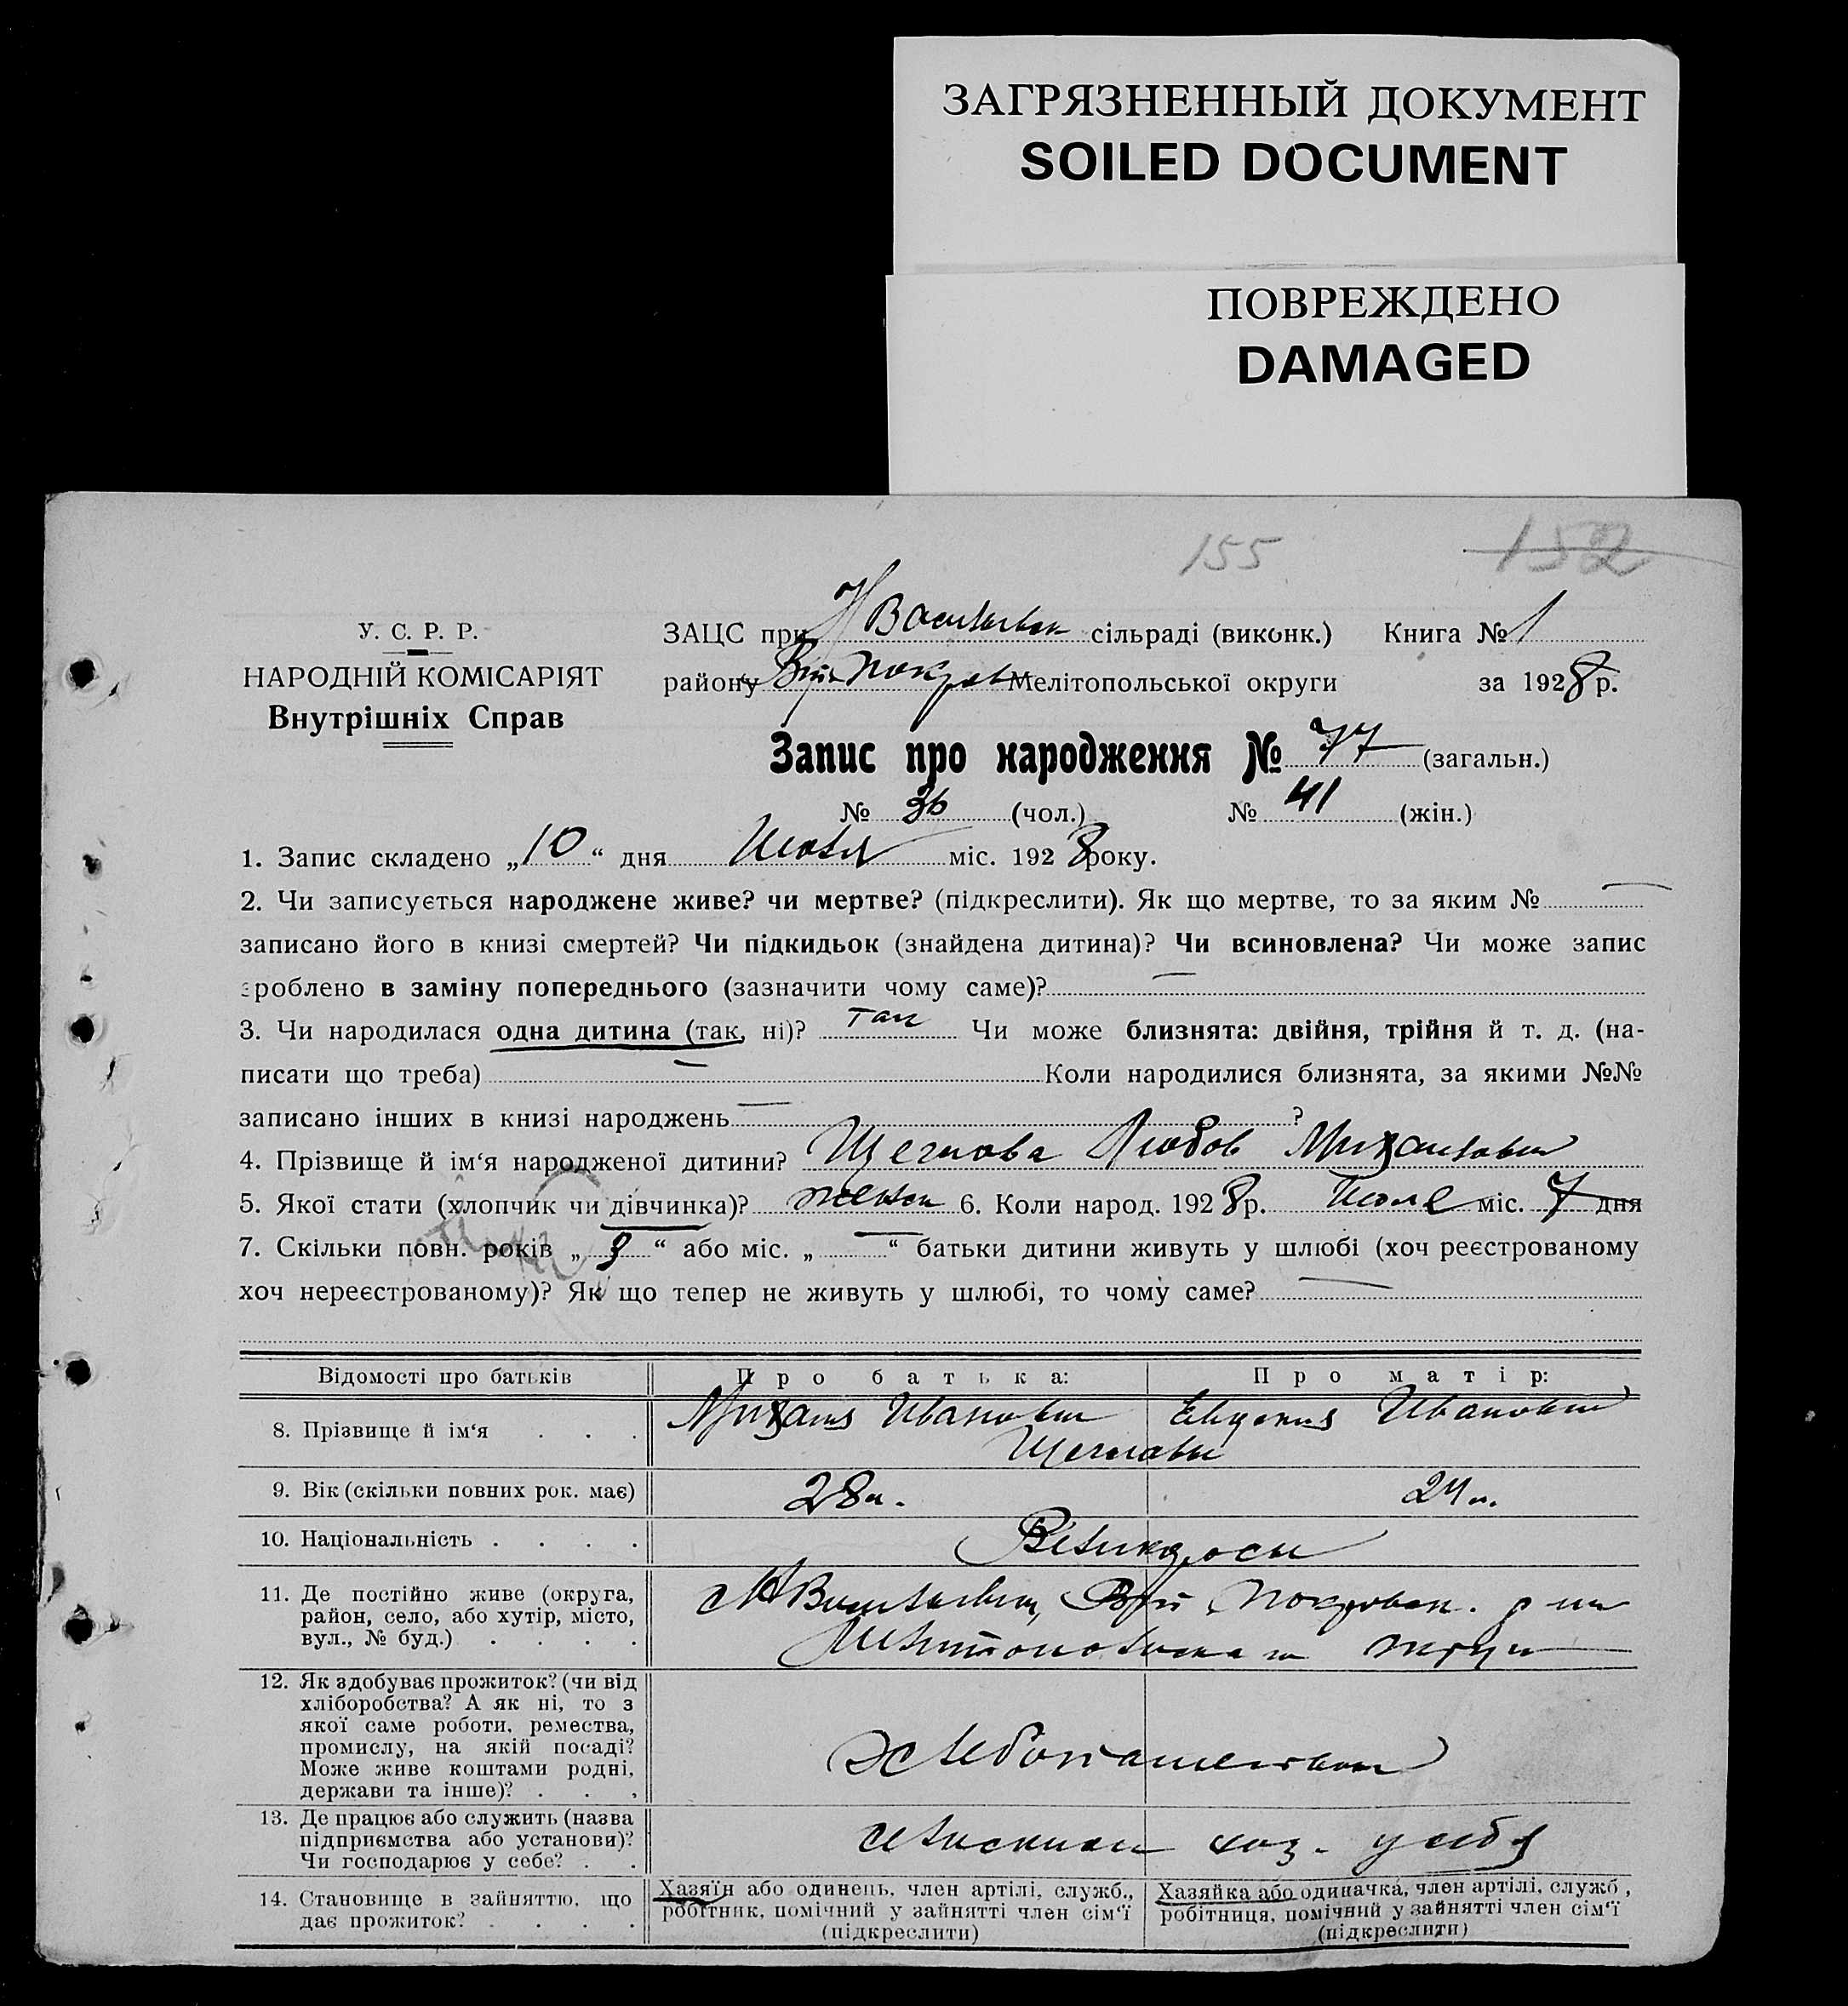 ЗАГРЯЗНЕННЫЙ ДОКУМЕНТ
SOILED DOCUMENT
ПОВРЕЖДЕНО
DAMAGED
155 152
У. С. Р. Р.
НАРОДНІЙ КОМІСАРІЯТ
Внутрішніх Справ
ЗАЦС при сільраді (виконк.) Книга № 1
району Мелітопольської округи за 1928 р.
Запис про народження № 77 (загальн.)
№ 36 (чол.) № 41 (жін.)
1. Запис складено „10“ дня Июля міс. 1928 року.
2. Чи записується народжене живе? чи мертве? (підкреслити). Як що мертве, то за яким № —
записано його в книзі смертей? Чи підкидьок (знайдена дитина)? Чи всиновлена? Чи може запис
зроблено в заміну попереднього (зазначити чому саме)? —
3. Чи народилася одна дитина (так, ні)? так Чи може близнята: двійня, трійня й т. д. (на-
писати що треба) — Коли народилися близнята, за якими №№
записано інших в книзі народжень — ?
4. Прізвище й ім‘я народженої дитини? Щеглова Любов Михайловна
5. Якої стати (хлопчик чи дівчинка)? женск 6. Коли народ. 1928 р. Июля міс. 7 дня
7. Скільки повн. років „9“ або міс. „—“ батьки дитини живуть у шлюбі (хоч реєстрованому
хоч нереєстрованому)? Як що тепер не живуть у шлюбі, то чому саме? —
Відомості про батьків Про батька: Про матір:
8. Прізвище й ім‘я . . . Михаил Иванович Евдокия Ивановна
Щегловы
9. Вік (скільки повних рок. має) 28 л. 24 л.
10. Національність . . . . Великоросы
11. Де постійно живе (округа,
район, село, або хутір, місто,
вул., № буд.) . . . .
Мелитопольска округи
12. Як здобуває прожиток? (чи від
хліборобства? А як ні, то з
якої саме роботи, ремества,
промислу, на якій посаді?
Може живе коштами родні,
держави та інше)? . . .
хлебопашеством
13. Де працює або служить (назва
підприємства або установи)?
Чи господарює у себе? . .
сельским хоз. у себя
14. Становище в зайняттю, що
дає прожиток? . . . .
Хазяїн або одинець, член артілі, служб.,
робітник, помічний у зайнятті член сім‘ї
(підкреслити)
Хазяйка або одиначка, член артілі, служб.,
робітниця, помічний у зайнятті член сім‘ї
(підкреслити)